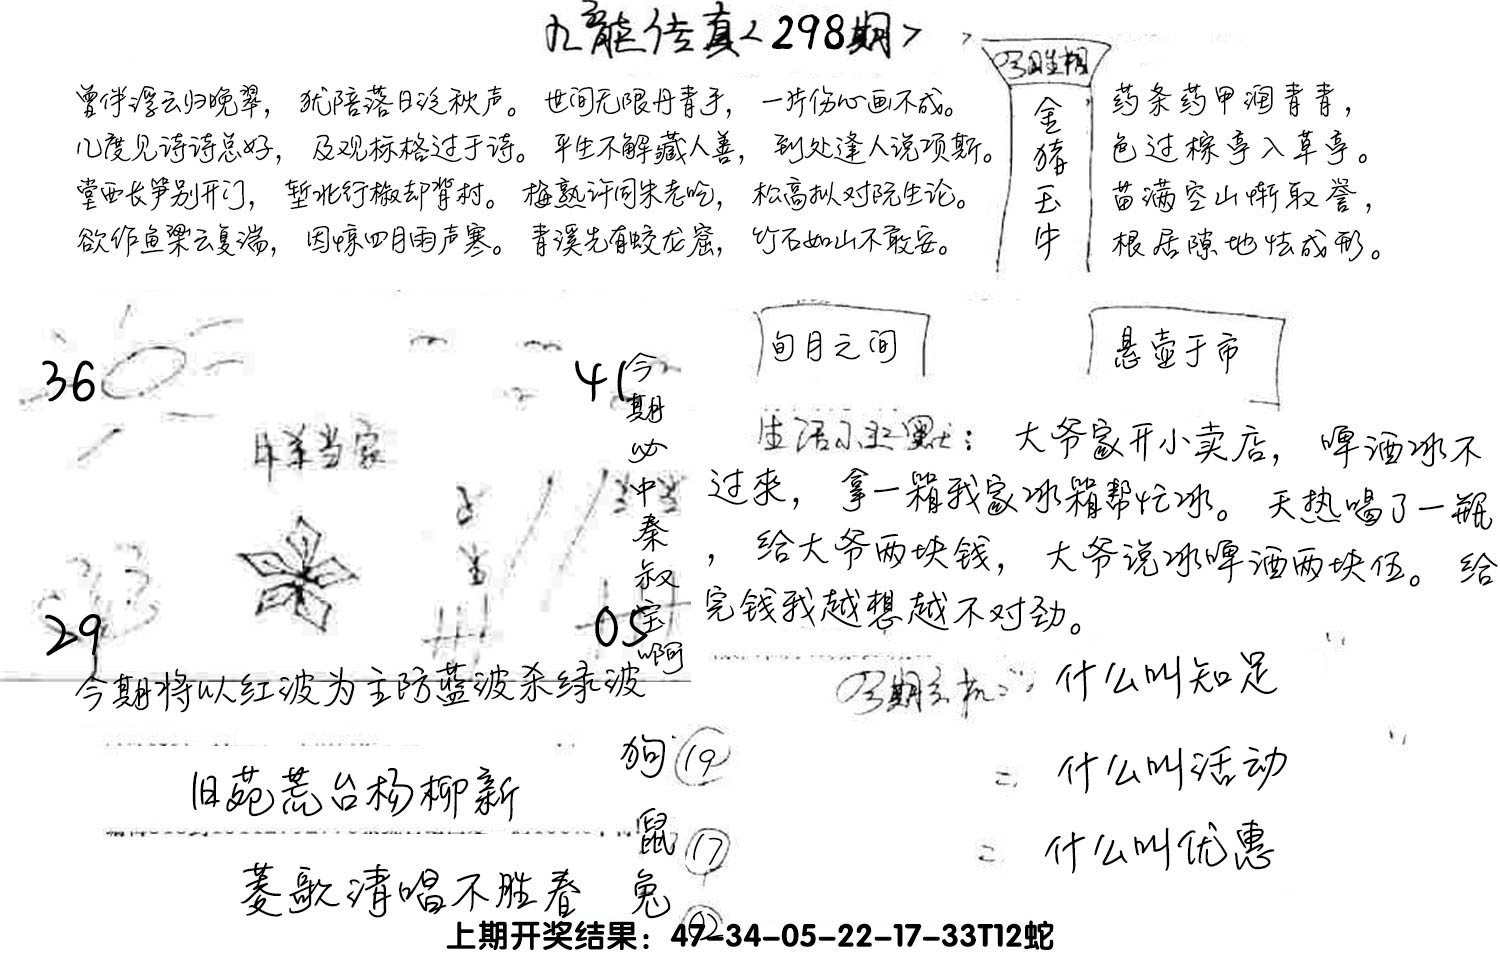 九龍传真<298期>
今期生相
金猪玉牛
曾伴浮云归晚翠，犹陪落日泛秋声。世间无限丹青手，一片伤心画不成。
几度见诗诗总好，及观标格过于诗。平生不解藏人善，到处逢人说项斯。
堂西长笋别开门，堑北行椒却背村。梅熟许同朱老吃，松高拟对阮生论。
欲作鱼梁云复湍，因惊四月雨声寒。青溪先有蛟龙窟，竹石如山不敢安。
药条药甲润青青，
色过棕亭入草亭。
苗满空山惭取誉，
根居隙地怯成形。
旬月之间
悬壶于市
36
41
当家
29
05
今期必中秦叔宝啊
今期将以红波为主防蓝波杀绿波
生活小幽默：大爷家开小卖店，啤酒冰不
过来，拿一箱我家冰箱帮忙冰。天热喝了一瓶
，给大爷两块钱，大爷说冰啤酒两块伍。给
完钱我越想越不对劲。
今期玄机：什么叫知足
= 什么叫活动
= 什么叫优惠
旧苑荒台杨柳新
菱歌清唱不胜春
狗 19
鼠 17
兔 02
上期开奖结果：47-34-05-22-17-33T12蛇